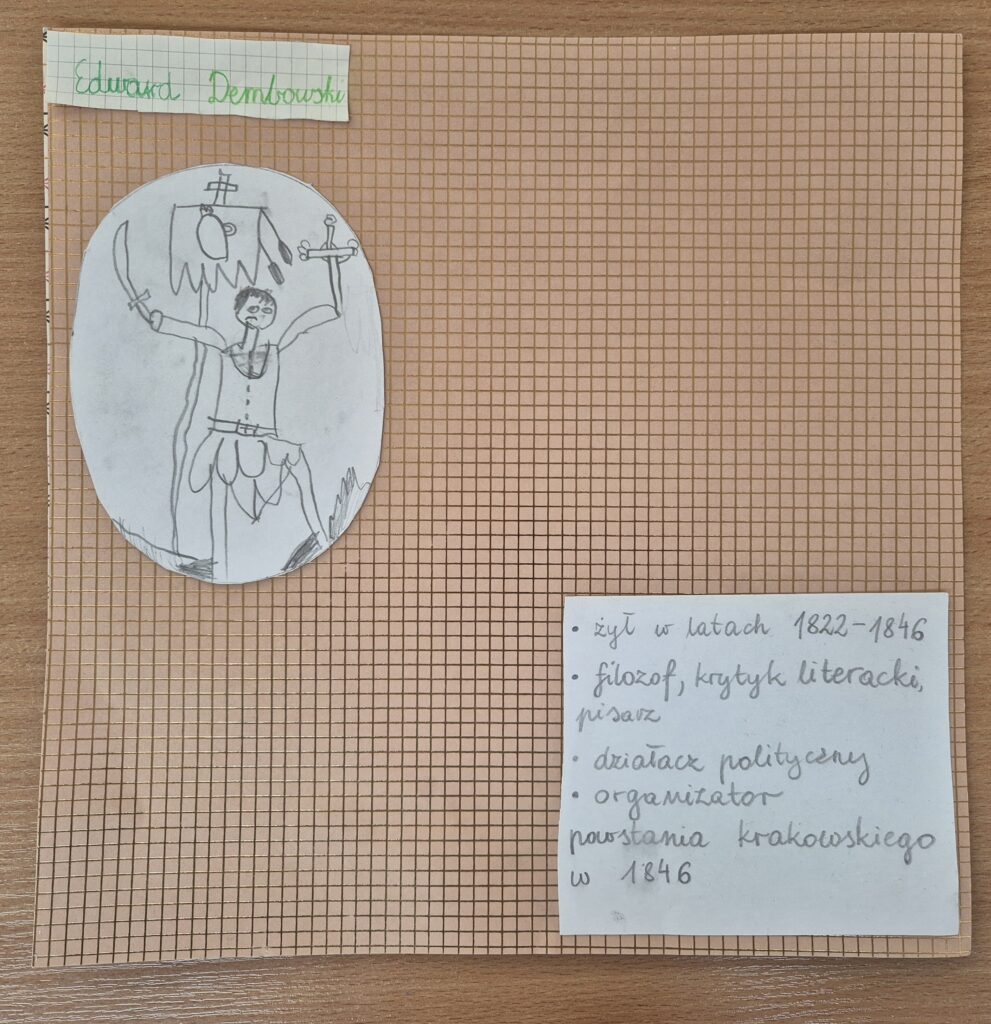 Edward Dembowski
• żył w latach 1822-1846
• filozof, krytyk literacki,
pisarz
• działacz polityczny
• organizator
powstania krakowskiego
w 1846